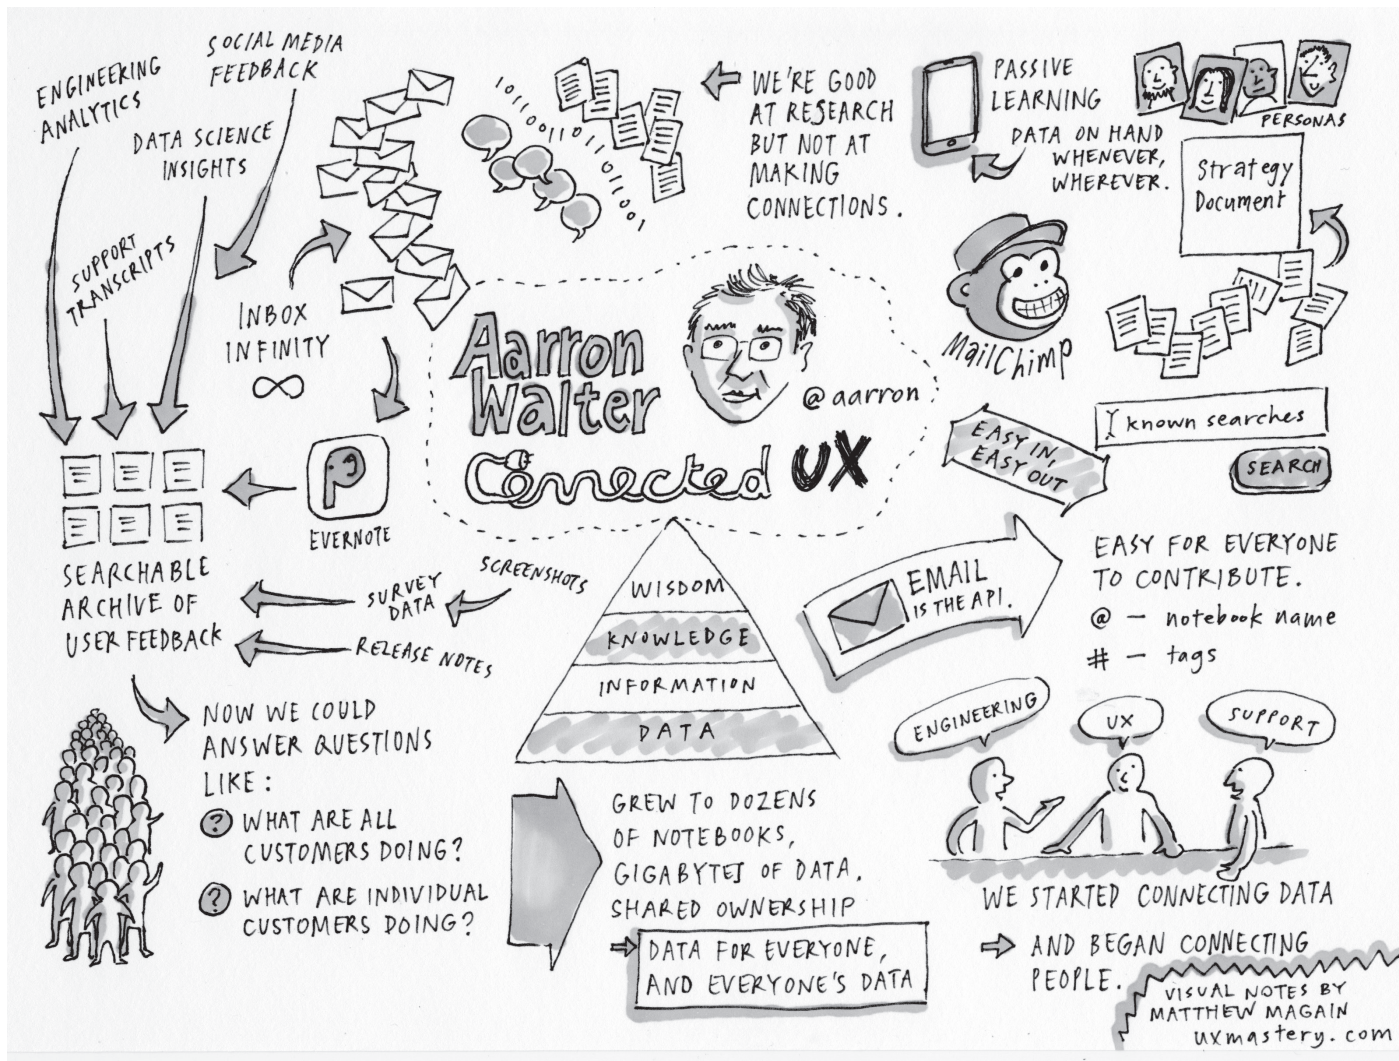 ENGINEERING
ANALYTICS
SOCIAL MEDIA
FEEDBACK
DATA SCIENCE
INSIGHTS
SUPPORT
TRANSCRIPTS
INBOX
INFINITY
∞
101100110110110111001
WE'RE GOOD
AT RESEARCH
BUT NOT AT
MAKING
CONNECTIONS.
PASSIVE
LEARNING
DATA ON HAND
WHENEVER,
WHEREVER.
PERSONAS
Strategy
Document
MailChimp
Aarron
Walter
@aarron
Connected UX
EASY IN,
EASY OUT
known searches
SEARCH
EVERNOTE
SEARCHABLE
ARCHIVE OF
USER FEEDBACK
SCREENSHOTS
SURVEY
DATA
RELEASE NOTES
WISDOM
KNOWLEDGE
INFORMATION
DATA
EMAIL
IS THE API.
EASY FOR EVERYONE
TO CONTRIBUTE.
@ – notebook name
# – tags
NOW WE COULD
ANSWER QUESTIONS
LIKE:
? WHAT ARE ALL
CUSTOMERS DOING?
? WHAT ARE INDIVIDUAL
CUSTOMERS DOING?
GREW TO DOZENS
OF NOTEBOOKS,
GIGABYTES OF DATA.
SHARED OWNERSHIP
DATA FOR EVERYONE,
AND EVERYONE'S DATA
ENGINEERING
UX
SUPPORT
WE STARTED CONNECTING DATA
AND BEGAN CONNECTING
PEOPLE.
VISUAL NOTES BY
MATTHEW MAGAIN
uxmastery.com